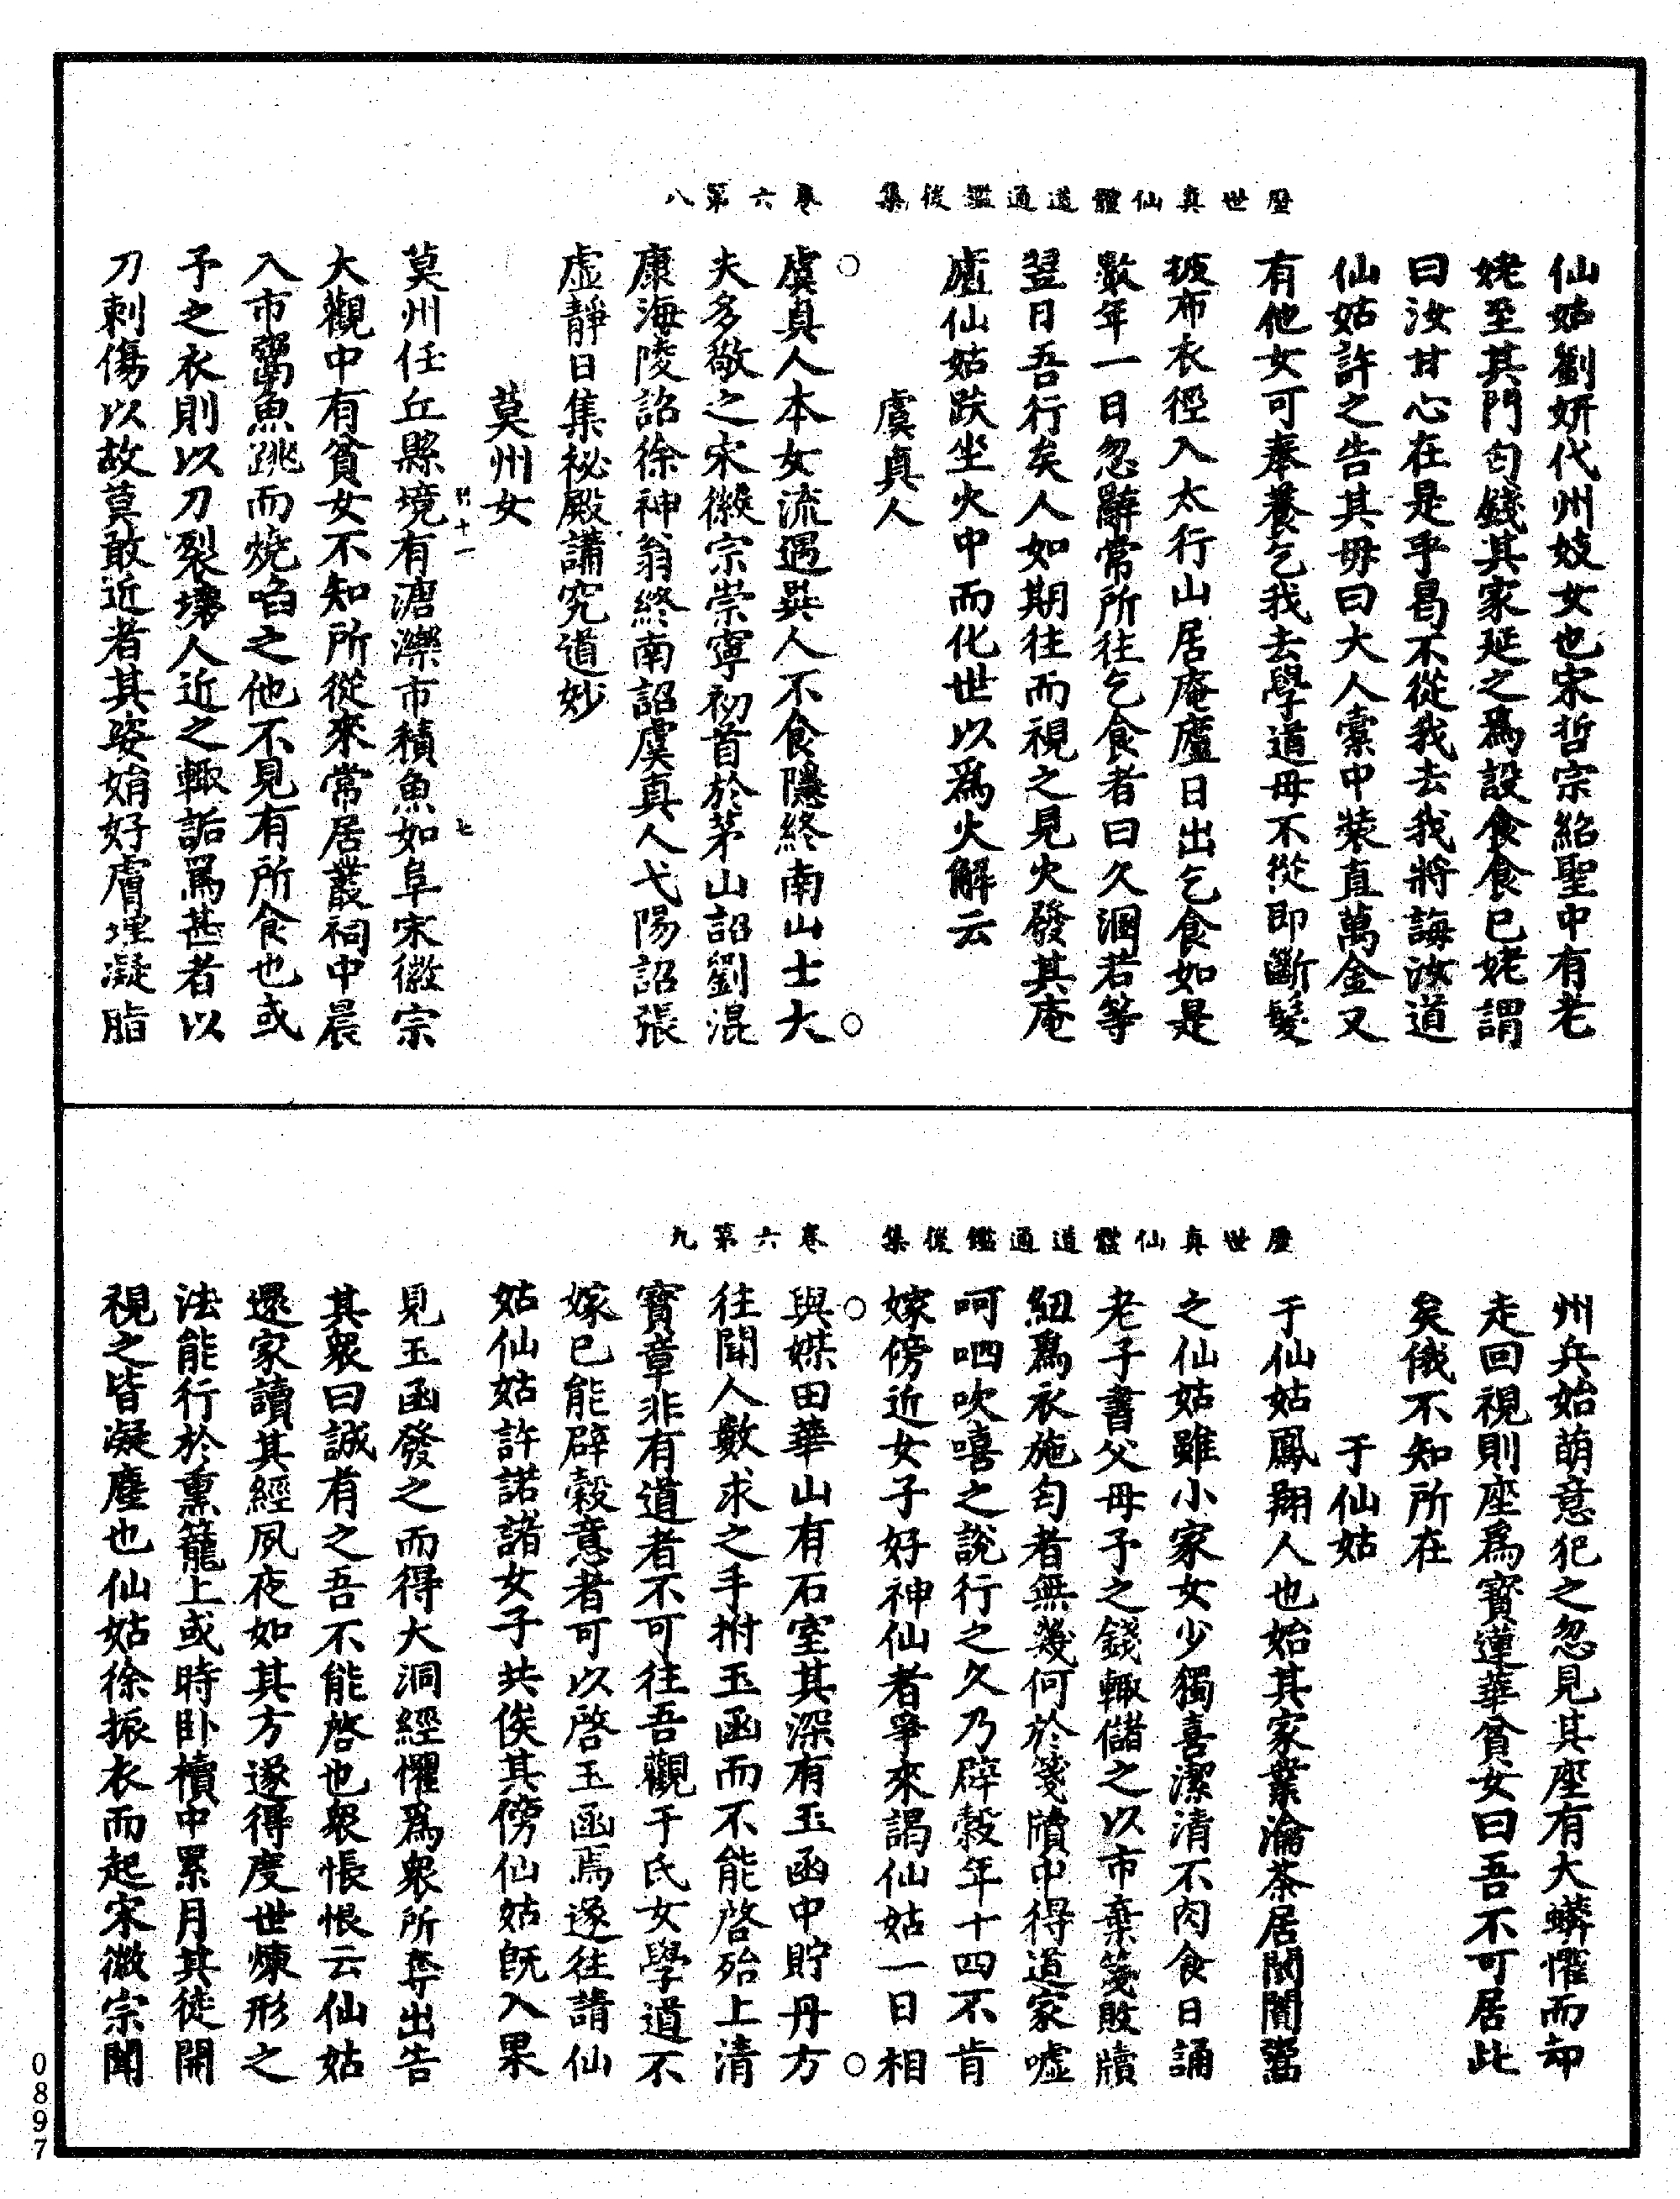 歷世真仙體道通鑑後集　卷六第八
仙姑劉妍代州妓女也宋哲宗紹聖中有老
姥至其門匄錢其家延之爲設食食已姥謂
曰汝甘心在是乎曷不從我去我將誨汝道
仙姑許之告其母曰大人橐中裝直萬金又
有他女可奉養乞我去學道母不從即斷髮
披布衣徑入太行山居庵廬日出乞食如是
數年一日忽辭常所往乞食者曰久溷若等
翌日吾行矣人如期往而視之見火發其庵
廬仙姑趺坐火中而化世以爲火解云
虞真人
○虞真人本女流遇異人不食隱終南山士大○
夫多敬之宋徽宗崇寧初首於茅山詔劉混
康海陵詔徐神翁終南詔虞真人弋陽詔張
虛靜日集祕殿講究道妙
莫州女
十一　七
莫州任丘縣境有溏濼市積魚如阜宋徽宗
大觀中有貧女不知所從來常居叢祠中晨
入市鬻魚跳而燒啗之他不見有所食也或
予之衣則以刀裂壞人近之輒詬爲甚者以
刀刺傷以故莫敢近者其姿娟好膚瑾凝脂
歷世真仙體道通鑑後集　卷六第九
州兵始萌意犯之忽見其座有大蟒懼而却
走回視則座爲寶蓮華貧女曰吾不可居此
矣俄不知所在
于仙姑
于仙姑鳳翔人也始其家業瀹茶居闤闠鬻
之仙姑雖小家女少獨喜潔清不肉食日誦
老子書父母予之錢輒儲之以市棄箋敗牘
紐爲衣施匄者無幾何於箋牘中得道家噓
呵呬吹嘻之說行之久乃辟穀年十四不肯
嫁傍近女子好神仙者爭來謁仙姑一日相
○與媒田華山有石室其深有玉函中貯丹方○
往聞人數求之手拊玉函而不能啓殆上清
寶章非有道者不可往吾觀于氏女學道不
嫁已能辟穀意者可以啓玉函焉遂往請仙
姑仙姑許諾諸女子共俟其傍仙姑既入果
見玉函發之而得大洞經懼爲衆所奪出告
其衆曰誠有之吾不能啓也衆悵恨云仙姑
還家讀其經夙夜如其方遂得度世煉形之
法能行於熏籠上或時臥櫝中累月其徒開
視之皆凝塵也仙姑徐振衣而起宋徽宗聞
0897